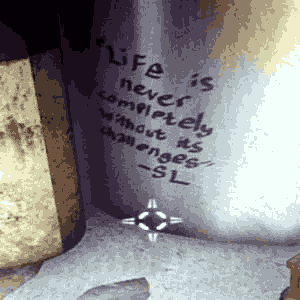 "Life is
never
completely
without its
challenges"
-SL